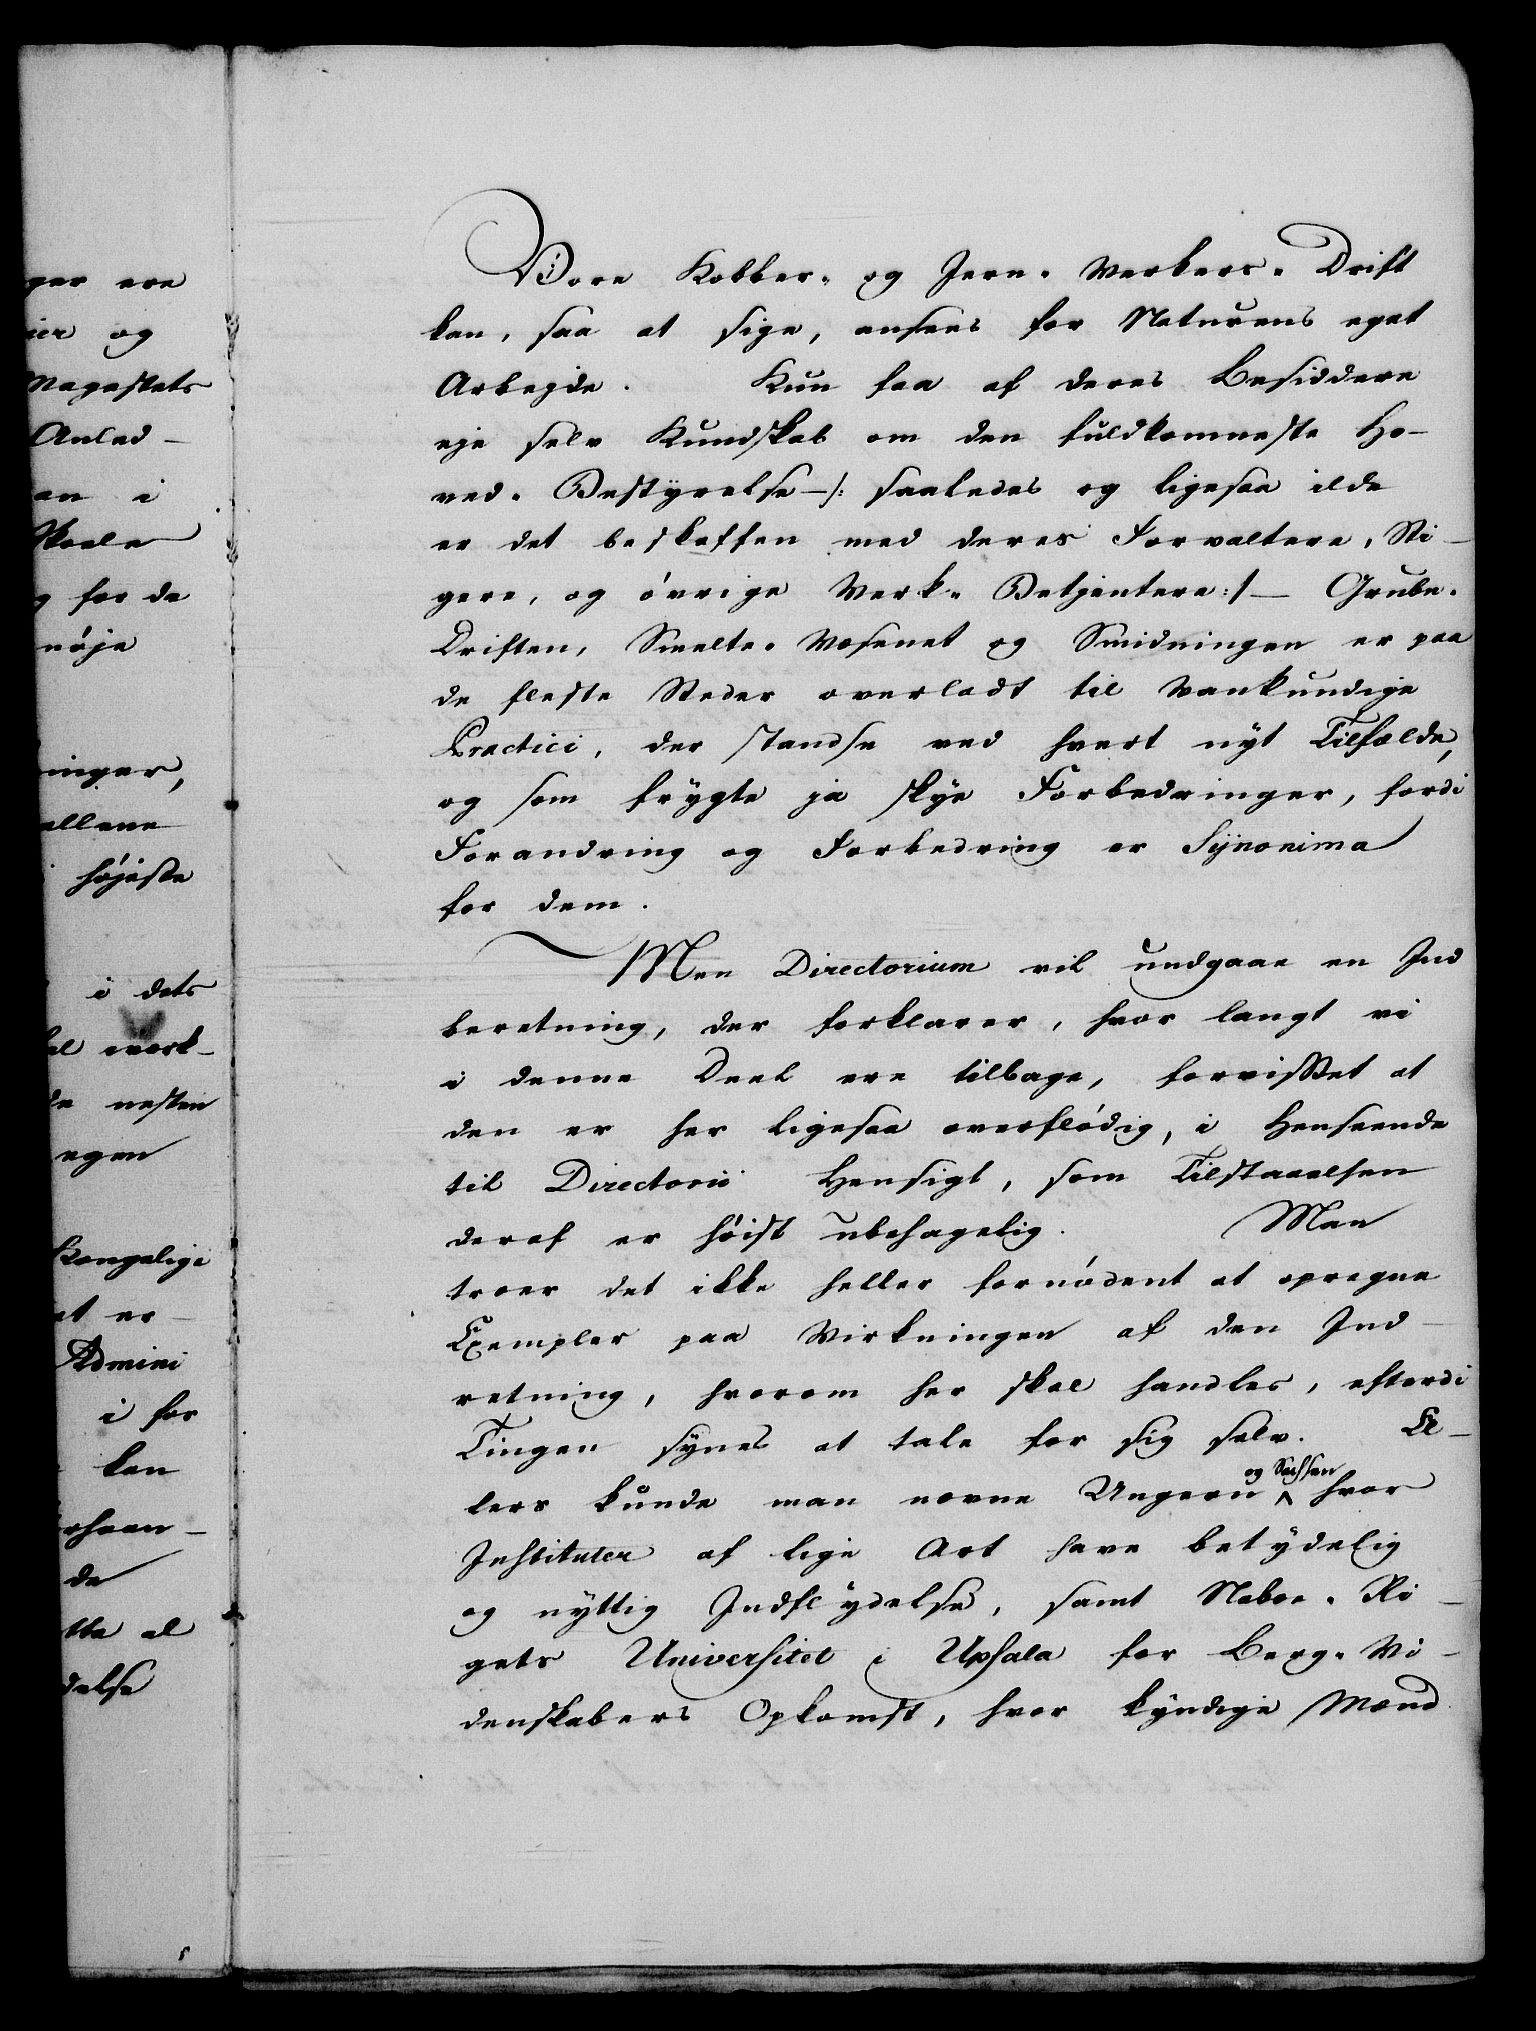 ger ere
ier og
Magestets
Anled-
en i
Skoele
g for de
nöje
inger,
ellene
höjeste
i dets
el werk-
de nesten
egen
Kongelige
et er-
Admini
i for
ken
rhaan-
de
tte al
delse
Vore Kobber- og Jern-Verkers-Drift
kan, saa at sige, ansees for Naturens eget
Arbejde. Kun faa af deres Besiddere
eje selv Kundskab om den fuldkomneste Ho-
ved-Bestyrelse -/: saaledes og ligesaa ilde
er det beskaffen med deres Forvaltere, Sti-
gere, og övrige Verk-Betjentere :/- Grube-
Driften, Smelte-Væsenet og Smidningen er paa
de fleste Steder overladt til vankundige
Practici, der standse ved hvert nyt Tilfælde,
og som frygte ja skye Forbedringer, fordi
Forandring og Forbedring er Sijnonima
for dem.
Men Directorium vil undgaae en Ind
beretning, der forklarer, hvor langt vi
i denne Deel ere tilbage, forvisset at
den er her ligesaa overflödig, i Henseende
til Directorii Hensigt, som Tilstaaelsen
deraf er höist ubehagelig. Man
troer det ikke heller fornödent at opregne
Exempler paa Virkningen af den Ind-
retning, hvorom her skal handles, efterdi
Tingen synes at tale for sig selv. El-
lers kunde man nevne Ungern og Sachsen hvor
Instituter af lige Art have betydelig
og nyttig Indflydelse, samt Naboe-Ri-
gets Universitet i Upsala for Berg-Vi-
denskabers Opkomst, hvor kyndige Mænd